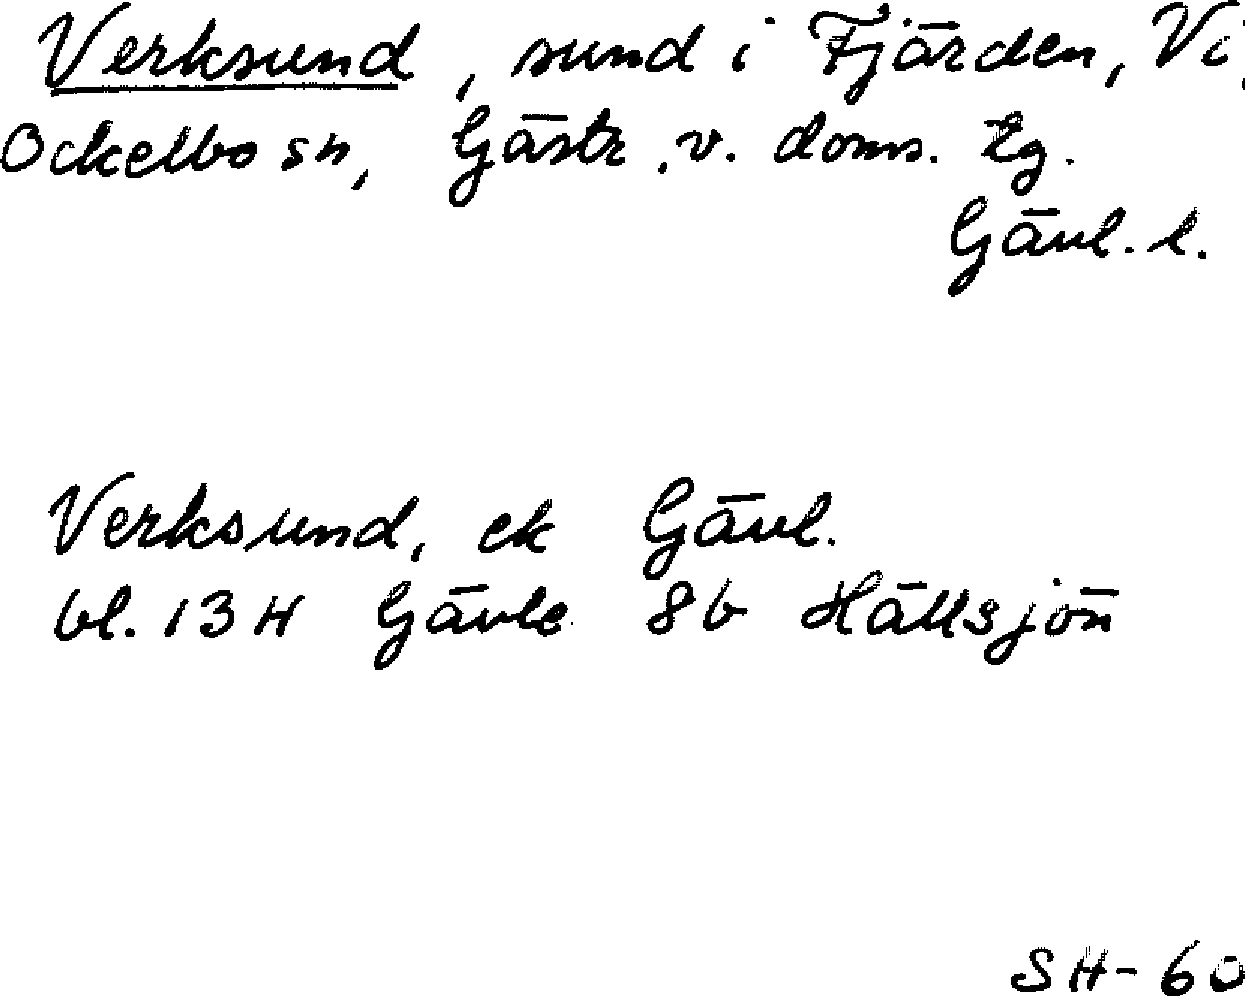 Verksund, sund i Fjärden, Vi
Ockelbo sn, Gästr. v. doms. tg.
Gävl. l.
Verksund, ek Gävl.
bl. 13 H Gävle 8b Hällsjön
SH-60